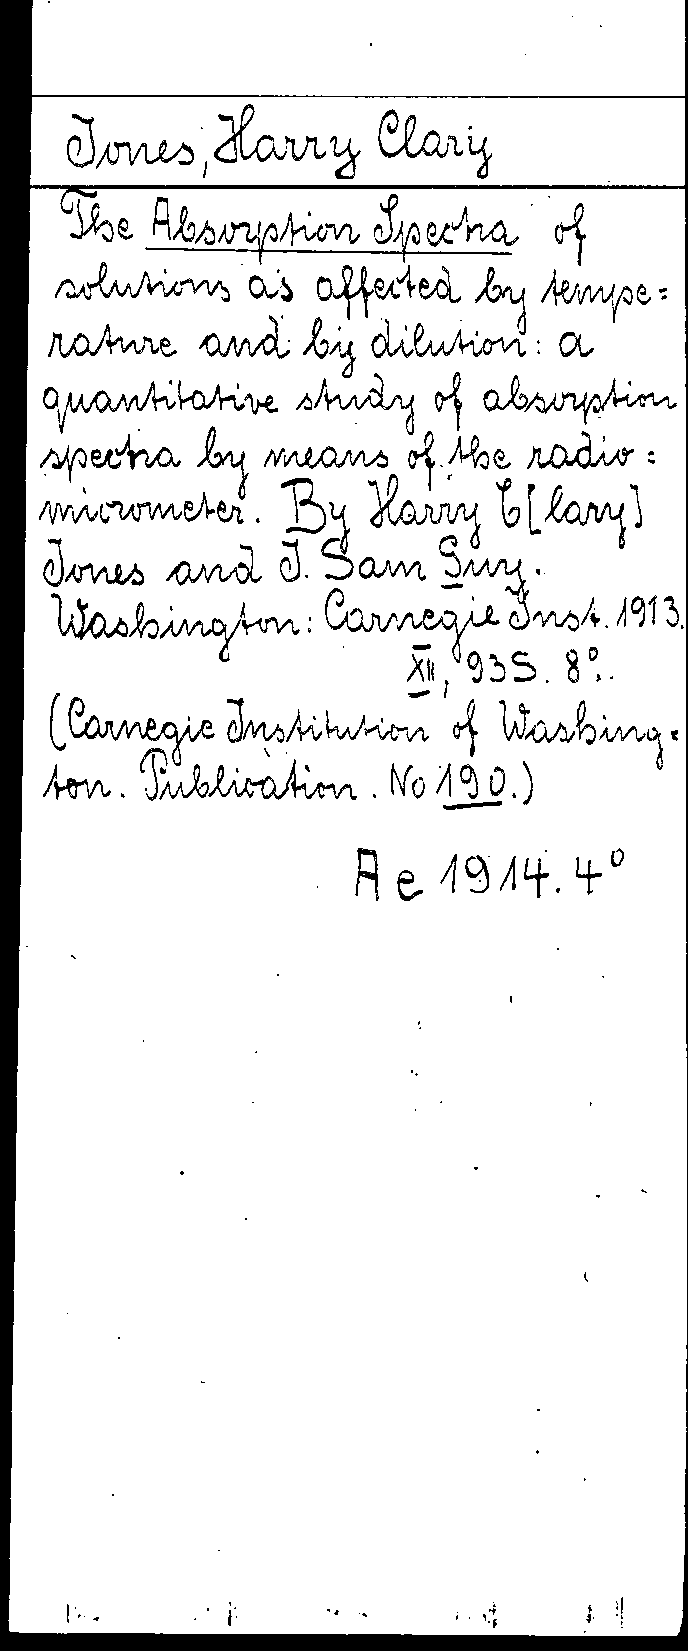 Jones, Harry Clary
The Absorption Spectra of
solutions as affected by tempe=
rature and by dilution: a
quantitative study of absorption
spectra by means of the radio=
micrometer. By Harry C[lary]
Jones and J. Sam Guy.
Washington: Carnegie Inst. 1913.
XII, 93 S. 8°.
(Carnegie Institution of Washing=
ton. Publication. No 190.)
Ae 1914. 4°